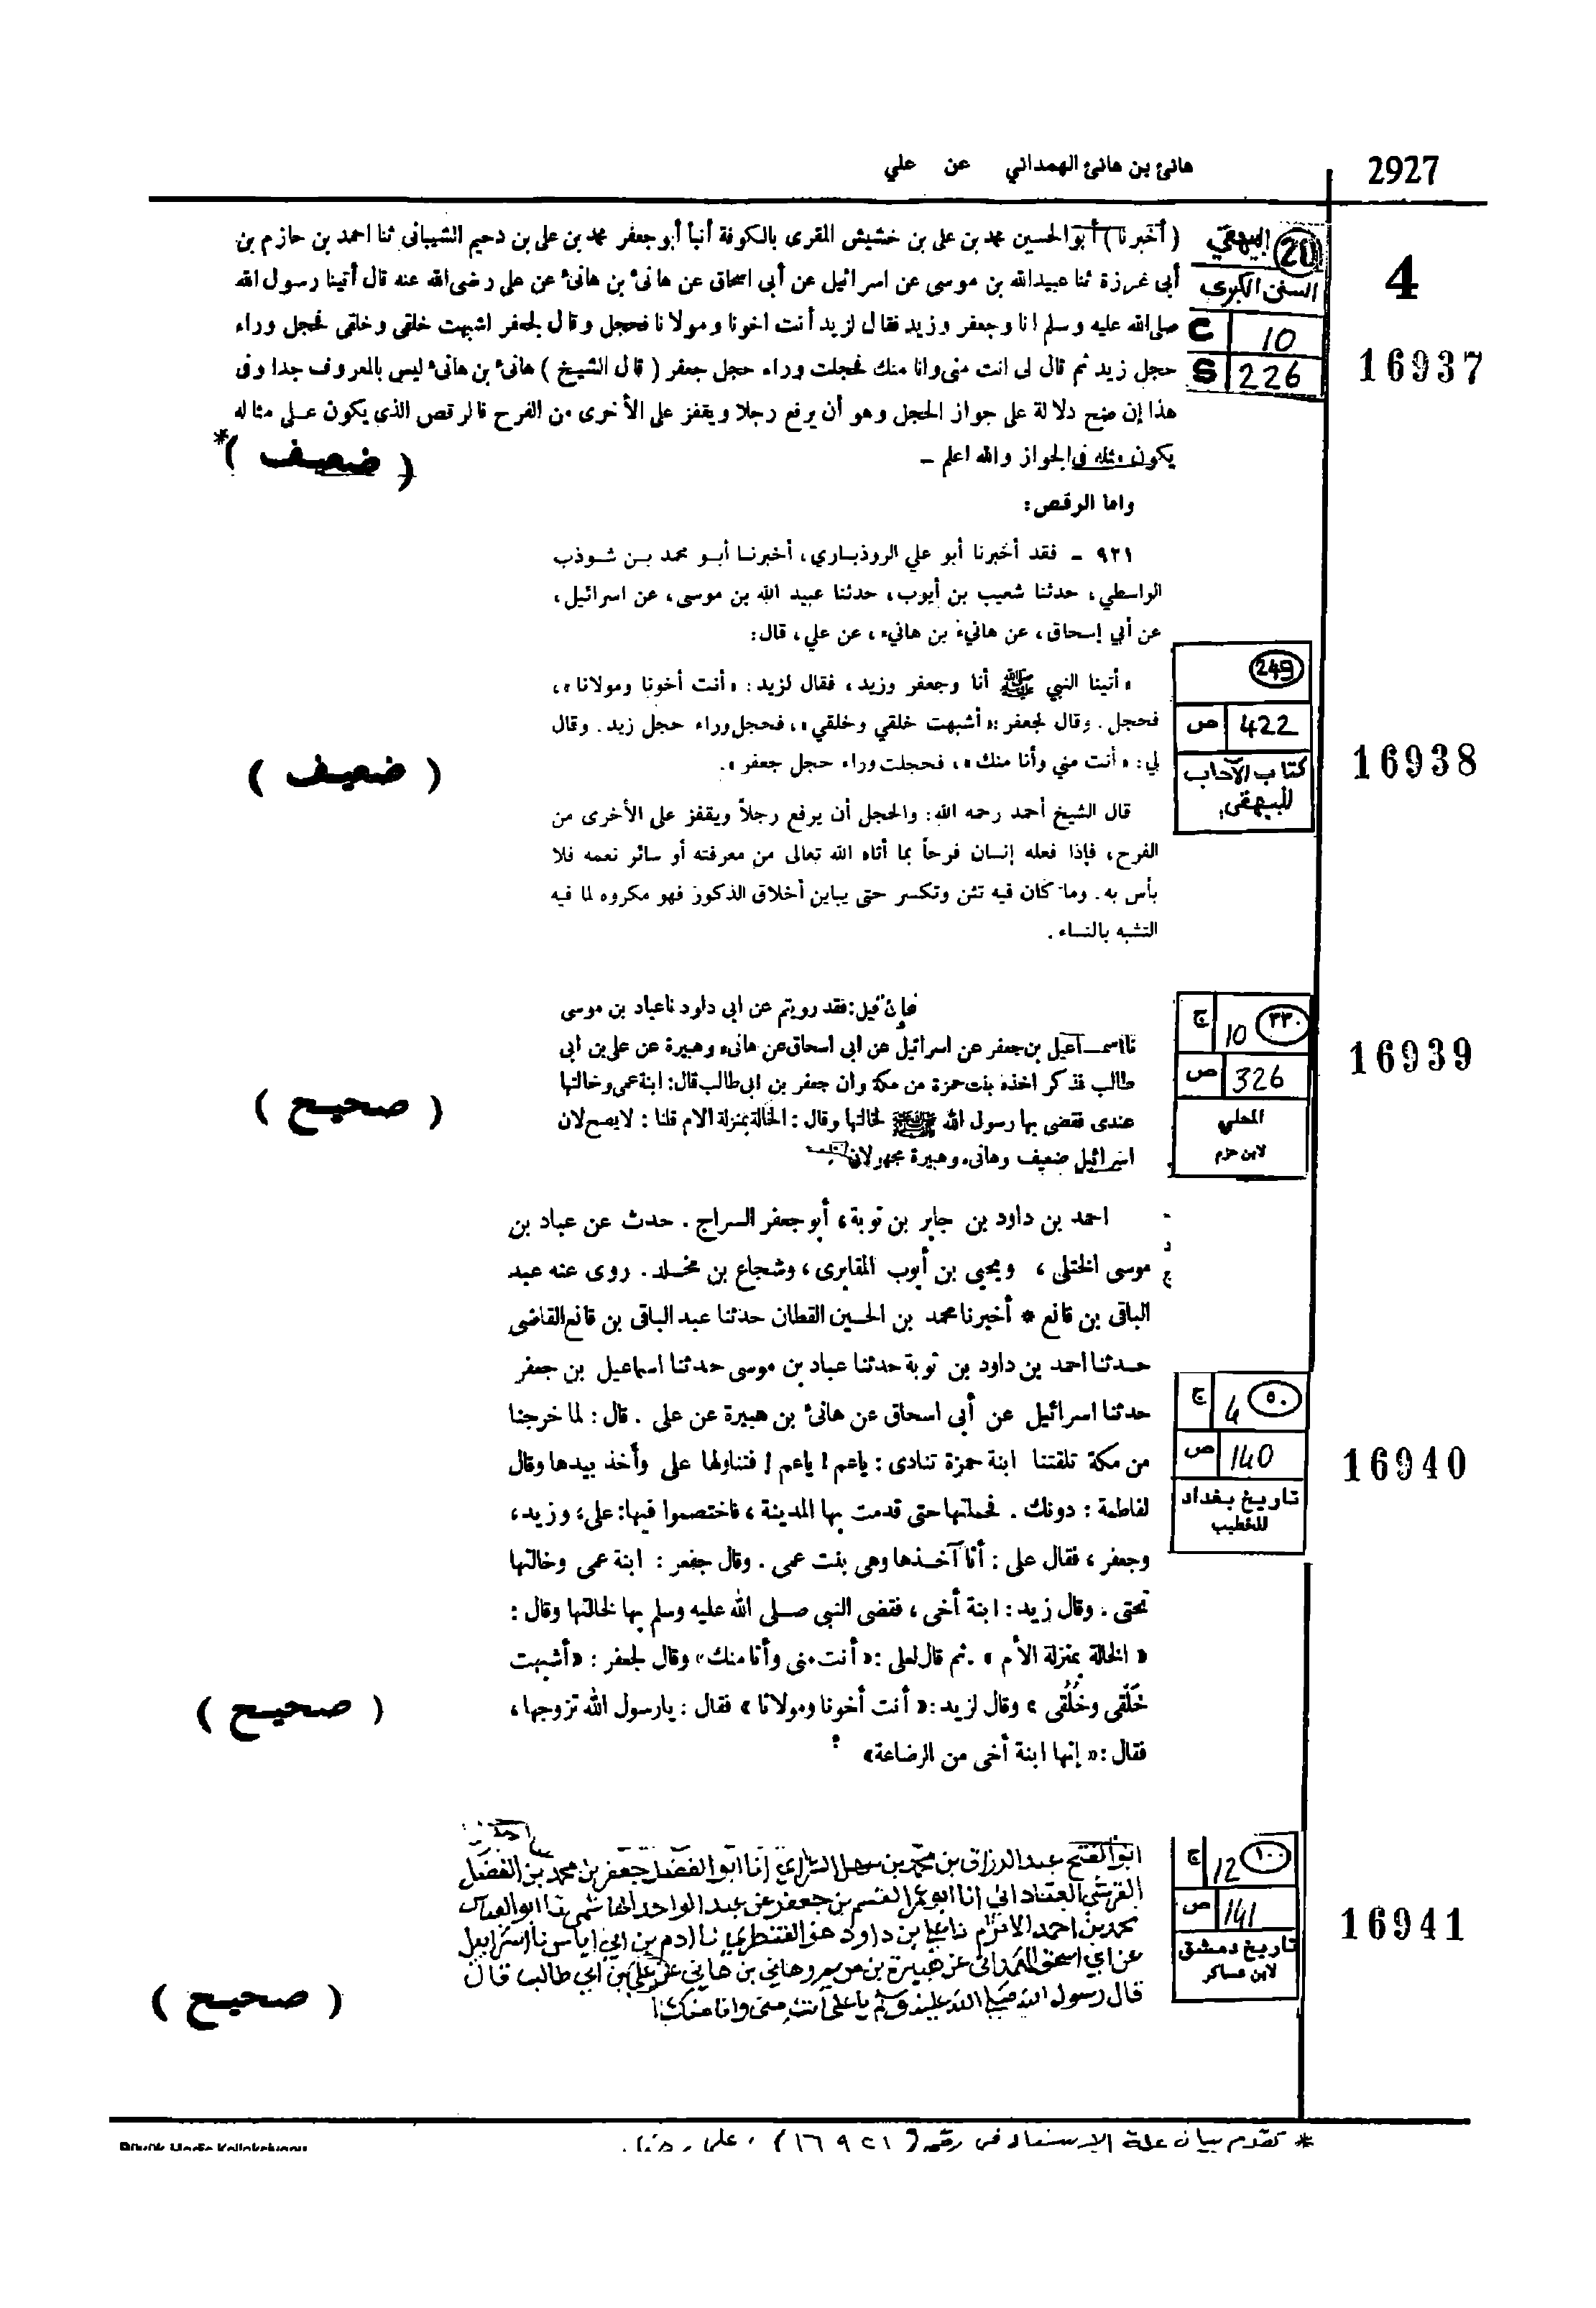 2927
هانئ بن هانئ الهمداني عن علي
4
16937
20 البيهقي
السنن الكبرى
C 10
S 226
(أخبرنا) أبو الحسين محمد بن علي بن خشيش المقرى بالكوفة أنبأ أبو جعفر محمد بن على بن دحيم الشيبانى ثنا احمد بن حازم بن
أبى غرزة ثنا عبيدالله بن موسى عن اسرائيل عن أبى اسحاق عن هانىء بن هانىء عن على رضى الله عنه قال أتينا رسول الله
صلى الله عليه وسلم انا وجعفر وزيد فقال لزيد أنت اخونا ومولانا فحجل وقال لجعفر اشبهت خلقى وخلقى فحجل وراء
حجل زيد ثم قال لى انت منى وانا منك فحجلت وراء حجل جعفر (قال الشيخ) هانىء بن هانىء ليس بالمعروف جدا وفى
هذا إن صح دلالة على جواز الحجل وهو أن يرفع رجلا ويقفز على الأخرى من الفرح فالرقص الذى يكون على مثاله
يكون مثله فى الجواز والله اعلم –
(ضعيف)*
واما الرقص:
٩٢١ - فقد أخبرنا أبو علي الروذباري، أخبرنا أبو محمد بن شوذب
الواسطي، حدثنا شعيب بن أيوب، حدثنا عبيد الله بن موسى، عن اسرائيل،
عن أبي إسحاق، عن هانيء بن هانيء، عن علي، قال:
«أتينا النبي ﷺ أنا وجعفر وزيد، فقال لزيد: «أنت أخونا ومولانا»،
فحجل. وقال لجعفر: «أشبهت خلقي وخلقي»، فحجل وراء حجل زيد. وقال
لي: «أنت مني وأنا منك»، فحجلت وراء حجل جعفر».
قال الشيخ أحمد رحمه الله: والحجل أن يرفع رجلاً ويقفز على الأخرى من
الفرح، فإذا فعله إنسان فرحاً بما أتاه الله تعالى من معرفته أو سائر نعمه فلا
بأس به. وما كان فيه تثن وتكسر حتى يباين أخلاق الذكور فهو مكروه لما فيه
التشبه بالنساء.
249
ص 422
كتاب الآداب
للبيهقي
16938
(ضعيف)
فإن قيل: فقد رويتم عن ابى داود نا عباد بن موسى
نا اسماعيل بن جعفر عن اسرائيل عن ابى اسحاق عن هانىء وهبيرة عن على بن ابى
طالب فذكر اخذه بنت حمزة من مكة وان جعفر بن ابى طالب قال: ابنة عمى وخالتها
عندى فقضى بها رسول الله ﷺ لخالتها وقال: الخالة بمنزلة الام قلنا: لا يصح لان
اسرائيل ضعيف وهانىء وهبيرة مجهولان
٣٣٠
ج 10
ص 326
المحلي
لابن حزم
16939
(صحيح)
احمد بن داود بن جابر بن توبة، أبو جعفر السراج. حدث عن عباد بن
موسى الختلى، ويحيى بن أيوب المقابرى، وشجاع بن مخلد. روى عنه عبد
الباقى بن قانع * أخبرنا محمد بن الحسين القطان حدثنا عبد الباقى بن قانع القاضى
حدثنا احمد بن داود بن توبة حدثنا عباد بن موسى حدثنا اسماعيل بن جعفر
حدثنا اسرائيل عن أبى اسحاق عن هانىء بن هبيرة عن على. قال: لما خرجنا
من مكة تلقتنا ابنة حمزة تنادى: ياعم! ياعم! فتناولها على وأخذ بيدها وقال
لفاطمة: دونك. فحملتها حتى قدمت بها المدينة، فاختصموا فيها: على، وزيد،
وجعفر، فقال على: أنا آخذها وهى بنت عمى. وقال جفعر: ابنة عمى وخالتها
تحتى. وقال زيد: ابنة أخى، فقضى النبى صلى الله عليه وسلم بها لخالتها وقال:
«الخالة بمنزلة الأم». ثم قال لعلى: «أنت منى وأنا منك» وقال لجعفر: «أشبهت
خَلْقى وخُلُقى» وقال لزيد: «أنت أخونا ومولانا» فقال: يارسول الله تزوجها،
فقال: «إنها ابنة أخى من الرضاعة»
٥٠
ج 4
ص 140
تاريخ بغداد
للخطيب
16940
(صحيح)
ابو الفتح عبد الرزاق بن محمد بن سهل الشرابي انا ابو الفضل جعفر بن محمد بن الفضل
القرشي العباداني انا ابو عمر القسم بن جعفر بن عبد الواحد الهاشمي نا ابو العباس
محمد بن احمد الاثرم نا علي بن داود هو القنطري نا ادم بن ابي اياس نا اسرائيل
عن ابي اسحق الهمداني عن هبيرة بن مريم وهاني بن هاني عن علي بن ابي طالب قال
قال رسول الله صلى الله عليه وسلم يا علي انت مني وانا منك
١٠٠
ج 12
ص 141
تاريخ دمشق
لابن عساكر
16941
(صحيح)
* تقدم بيان علة الإسناد في رقم (١٦٩٢١)
Büyük Hadis Kolleksiyonu